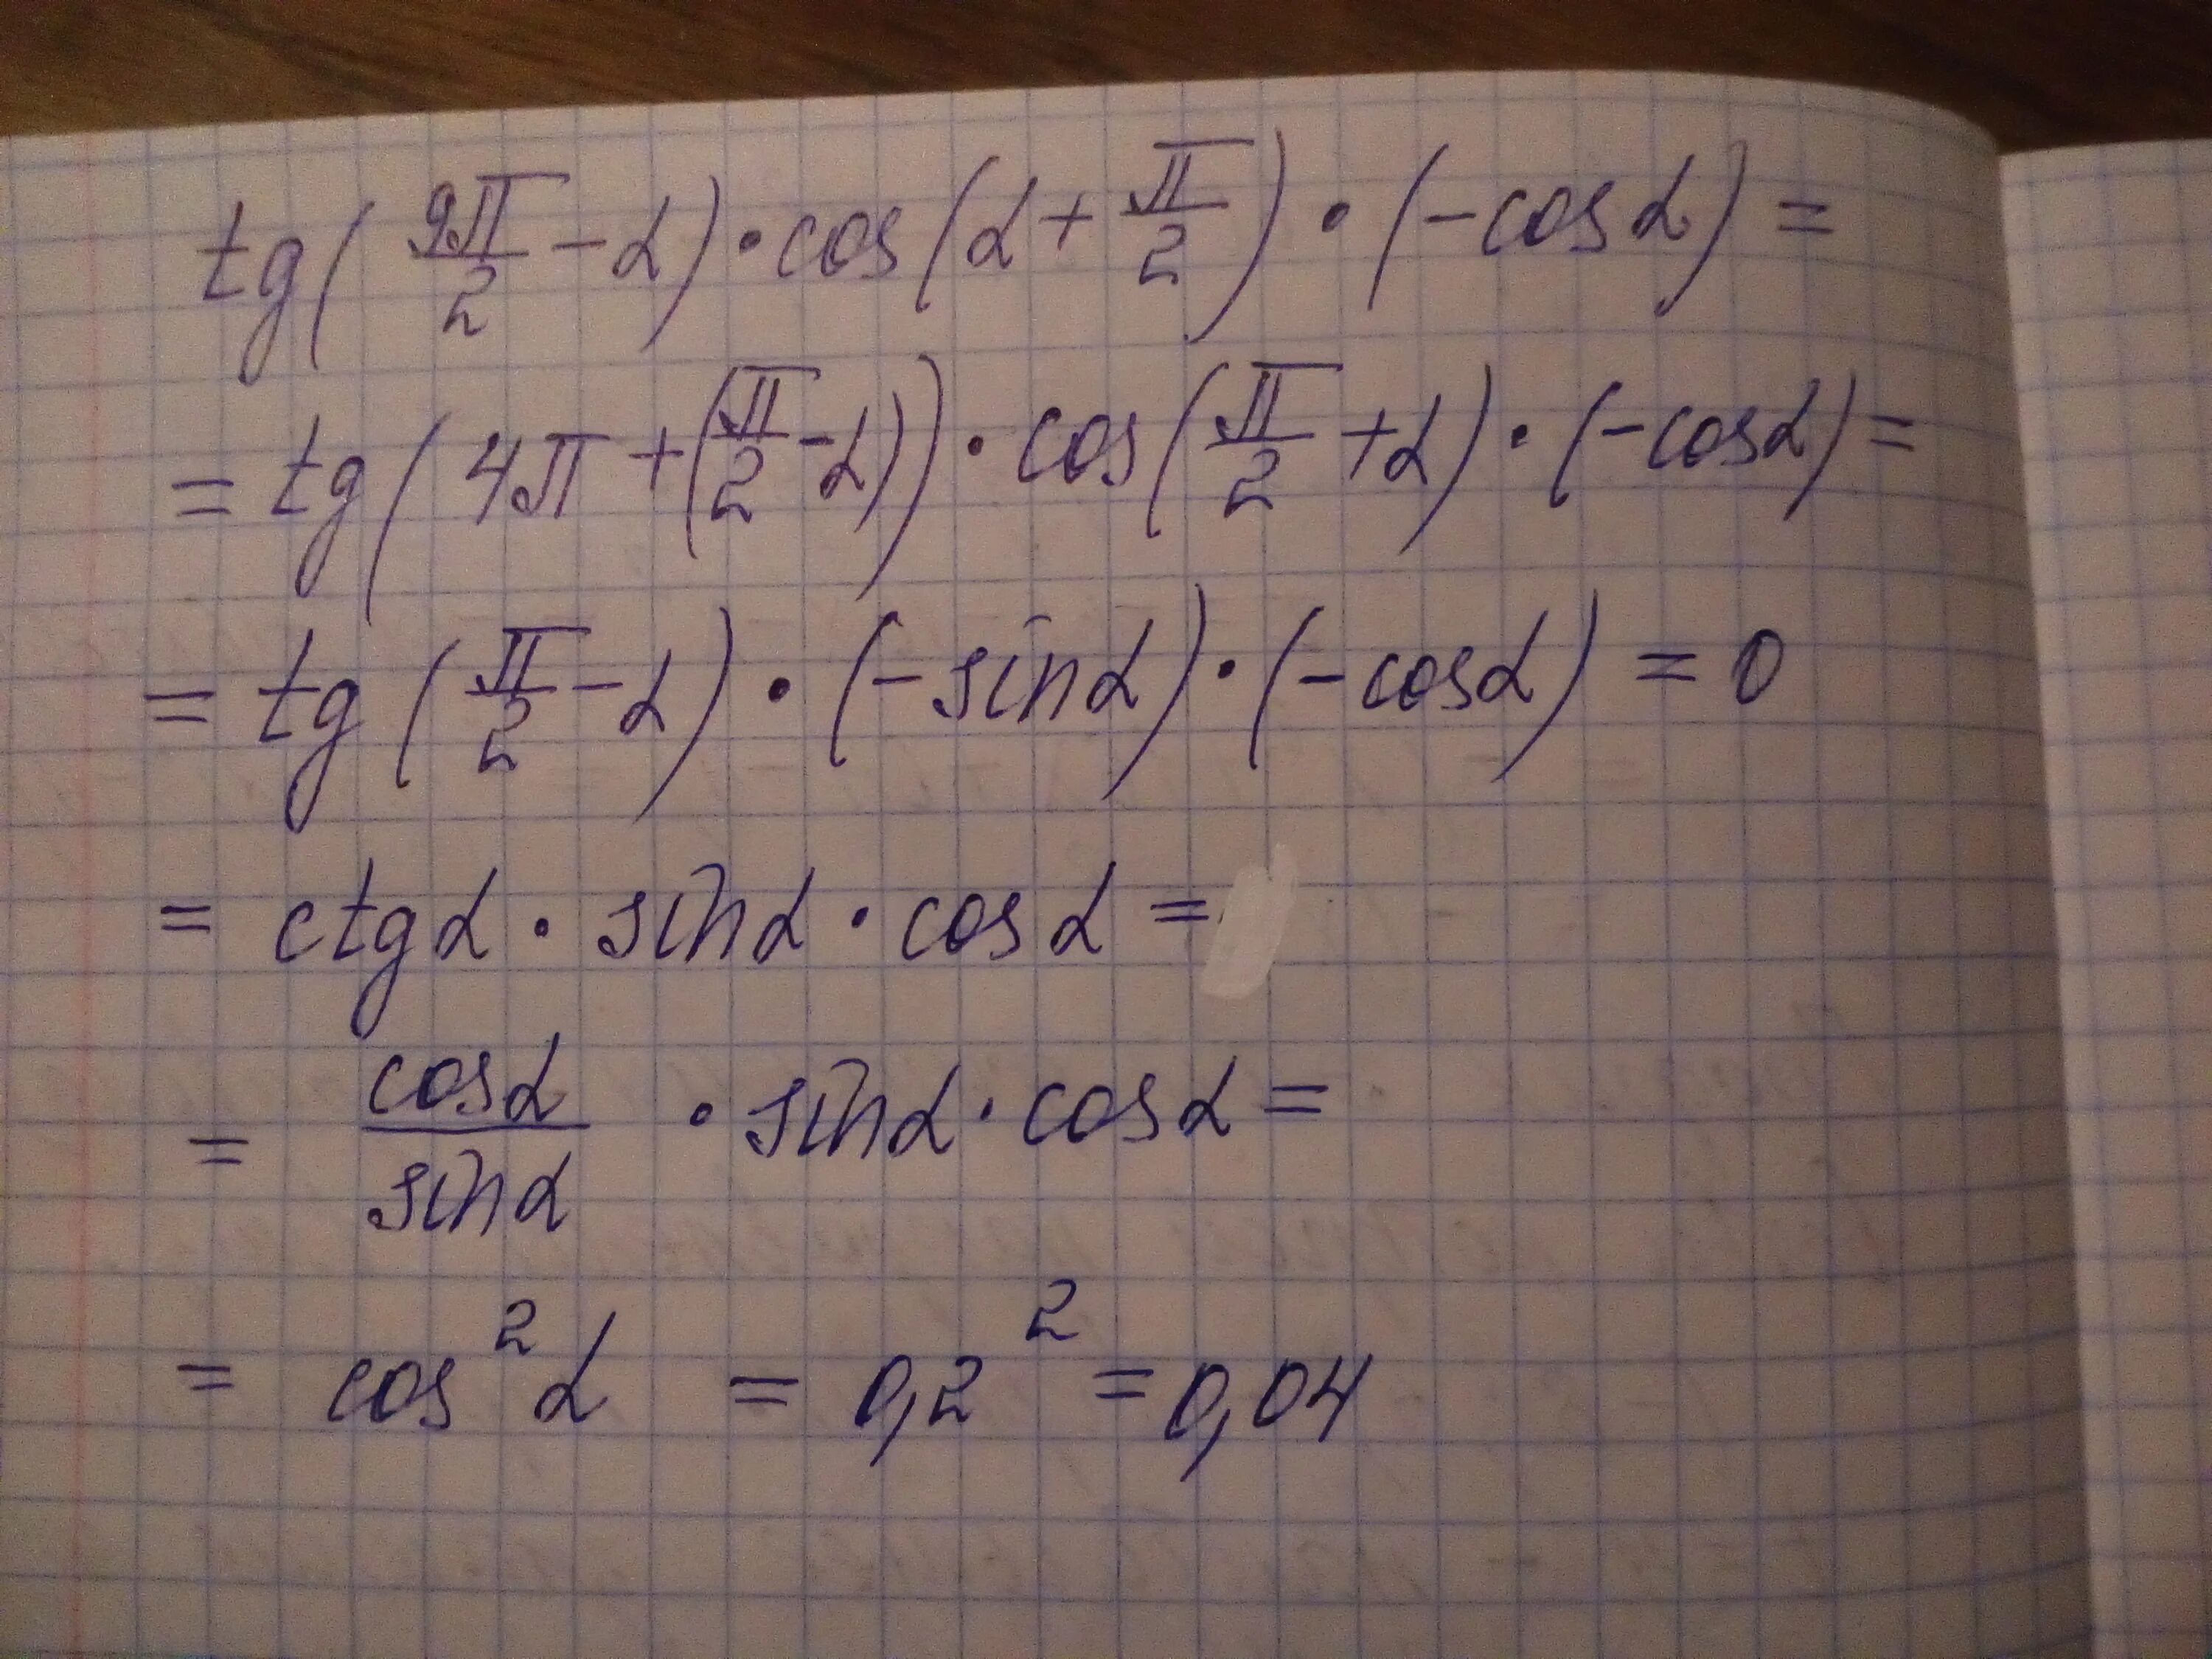 tg(9π/2 - α) · cos(α + π/2) · (-cosα) =
= tg(4π + (π/2 - α)) · cos(π/2 + α) · (-cosα) =
= tg(π/2 - α) · (-sinα) · (-cosα) = 0
= ctgα · sinα · cosα =
= cosα/sinα · sinα · cosα =
= cos²α = 0,2² = 0,04